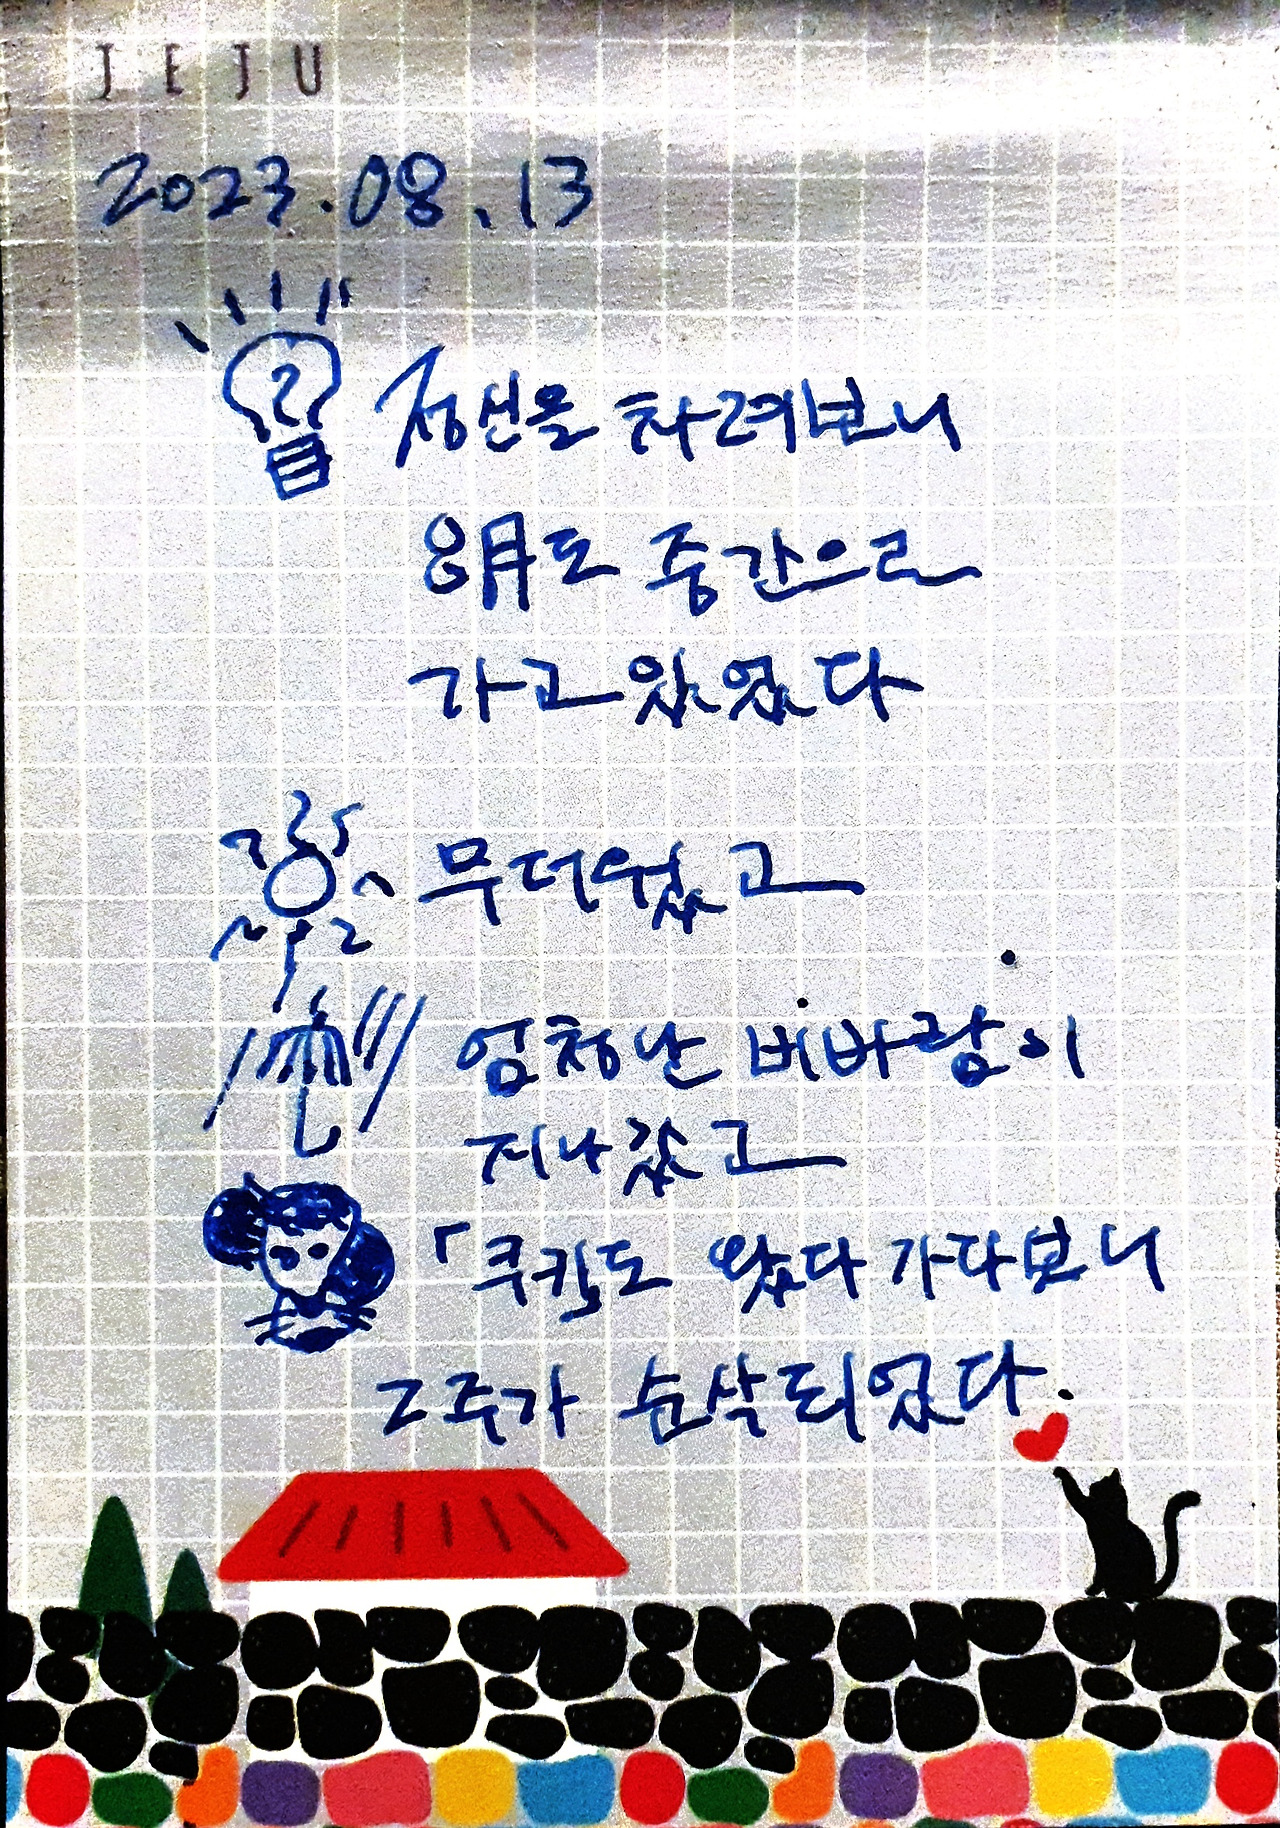 JEJU
2023.08.13
정신을 차려보니
8月도 중간으로
가고 있었다
무더웠고
엄청난 비바람이
지나갔고
「쿠킹도 왔다 가다보니
2주가 순삭되었다.